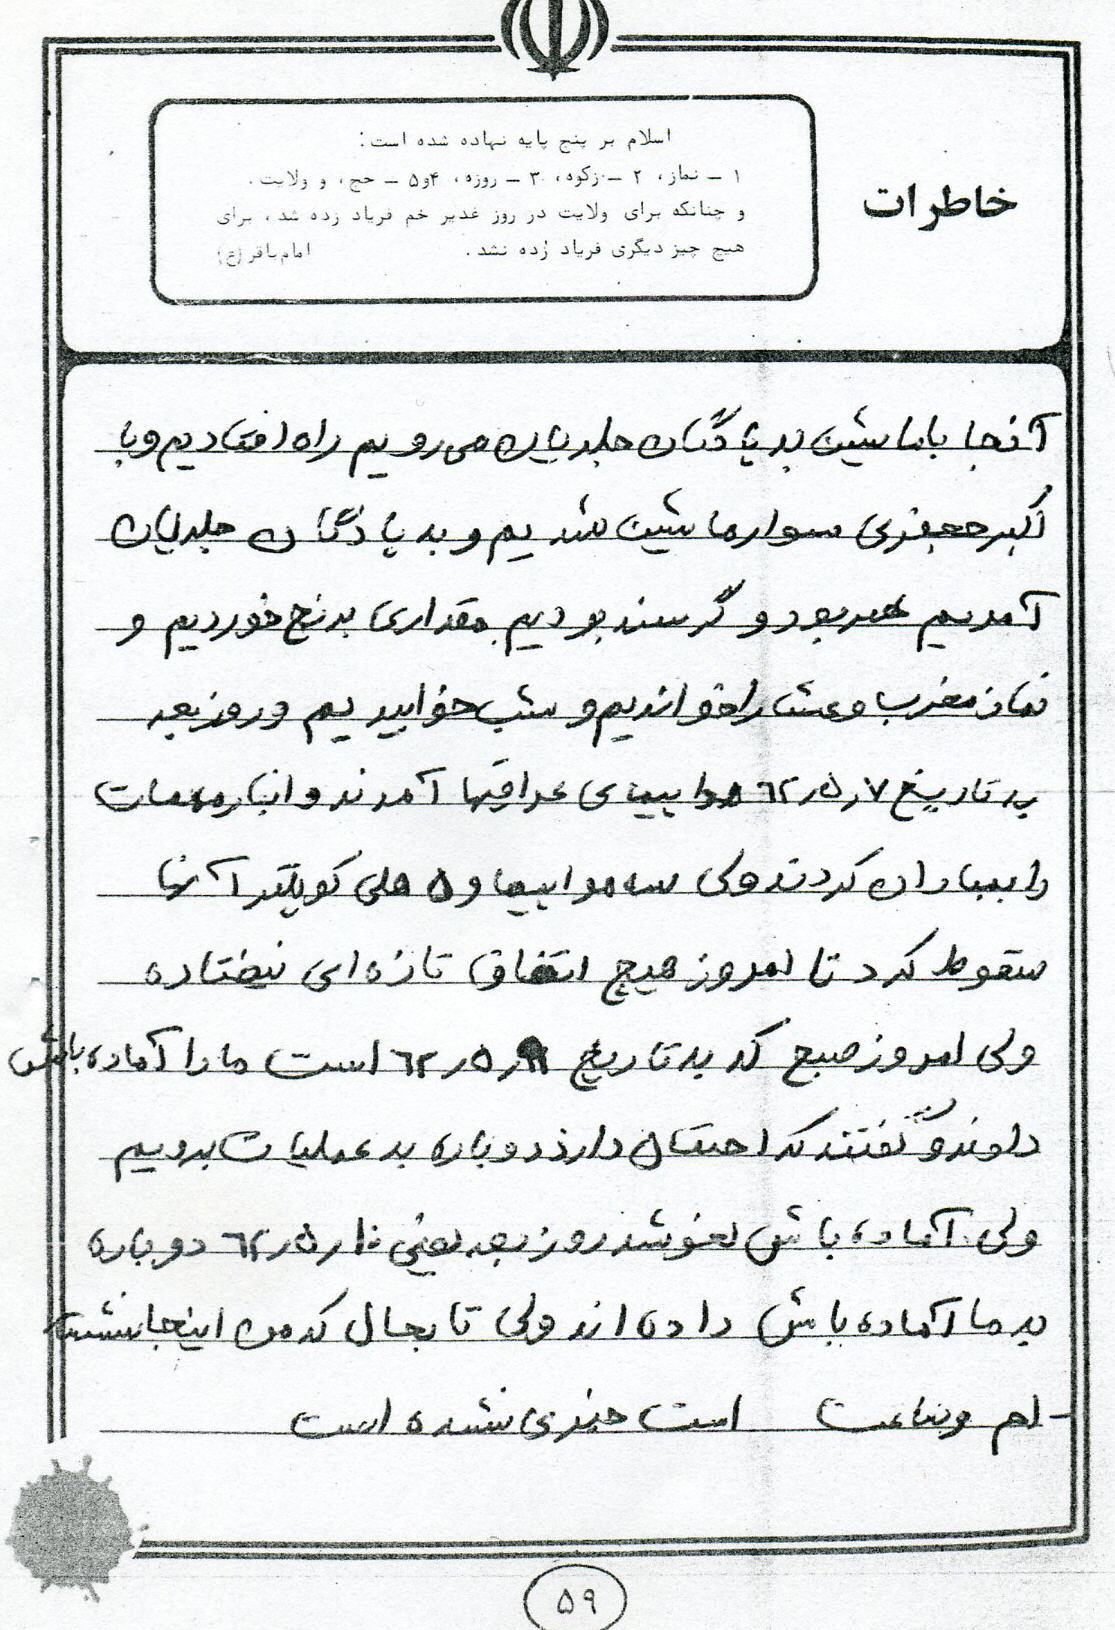 خاطرات
اسلام بر پنج پایه نهاده شده است:
۱ – نماز، ۲ – زکوه، ۳ – روزه، ۴و۵ – حج، و ولایت.
و چنانکه برای ولایت در روز غدیر خم فریاد زده شد، برای
هیچ چیز دیگری فریاد زده نشد. امام باقر (ع)
آنجا با ماشین به پادگان جلدیان می رویم راه افتادیم و با
اکبر جعفری سوار ماشین شدیم و به پادگان جلدیان
آمدیم بود و گرسنه بودیم مقداری برنج خوردیم و
نماز مغرب و عشا را خواندیم و شب خوابیدیم و روز بعد
به تاریخ ۷ر۵ر۶۲ هواپیمای عراقیها آمدند و انبار مهمات
را بمباران کردند ولی سه هواپیما و ۵ هلی کوپتر آنها
سقوط کرد تا امروز هیچ اتفاق تازه ای نیفتاده
ولی امروز صبح که به تاریخ ۹ر۵ر۶۲ است ما را آماده باش
دادند و گفتند که احتمال دارد دوباره به عملیات برویم
ولی آماده باش لغو شد روز بعد یعنی ۱۰ر۵ر۶۲ دوباره
به ما آماده باش داده اند ولی تا بحال که من اینجا نشسته
-ام و ساعت است خبری نشده است
۵۹